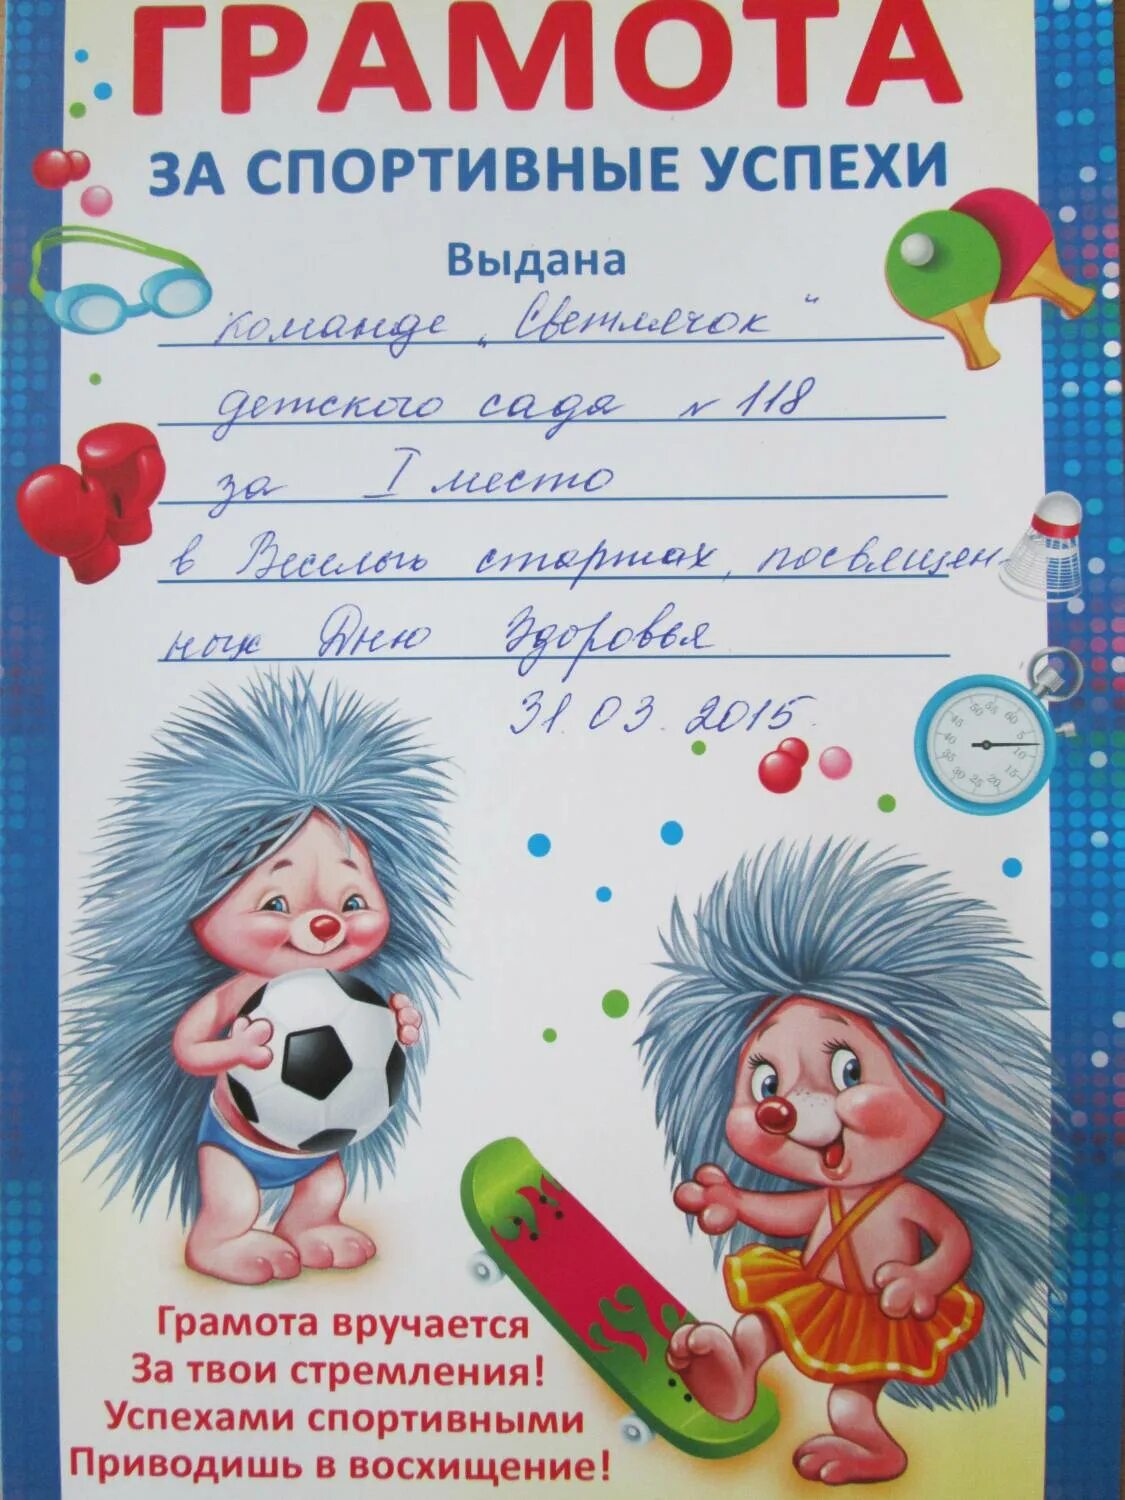 ГРАМОТА
ЗА СПОРТИВНЫЕ УСПЕХИ
Выдана
команде „Светлячок"
детского сада № 118
за I место
в Веселых стартах, посвящен-
ных Дню Здоровья
31.03.2015.
60
5
10
15
20
25
30
35
40
45
50
55
Грамота вручается
За твои стремления!
Успехами спортивными
Приводишь в восхищение!